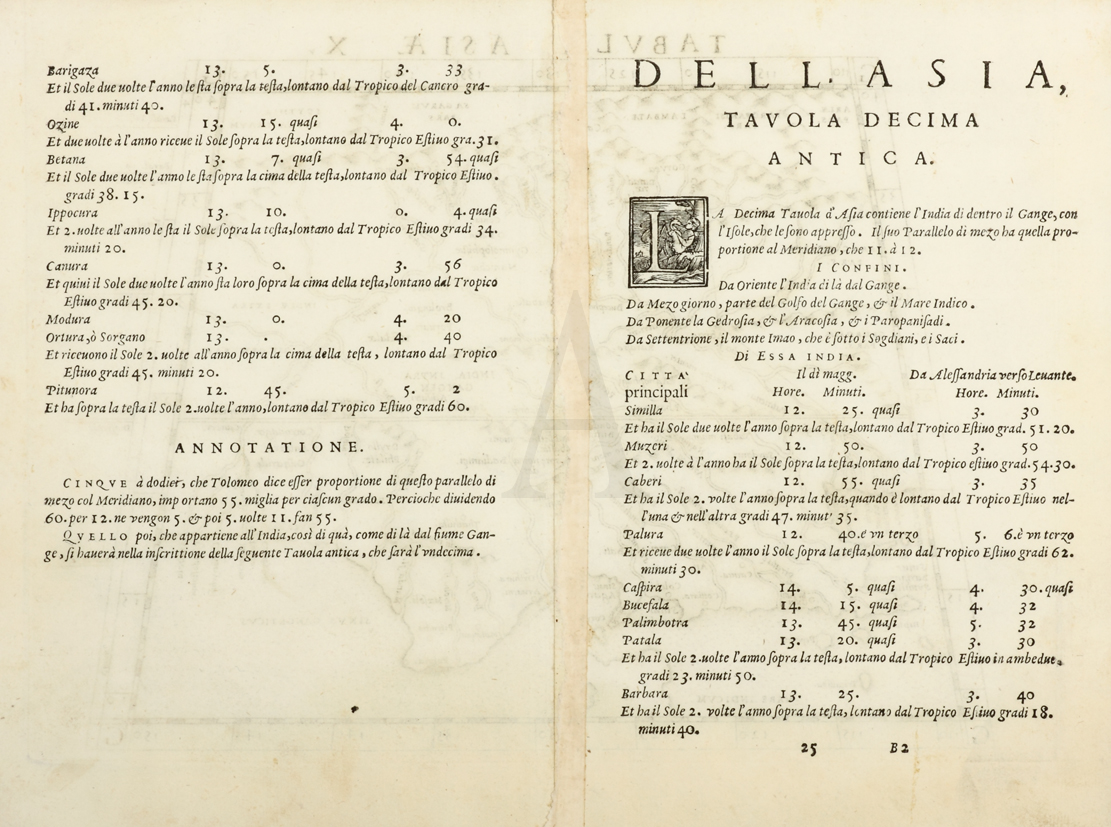 Barigaza 13. 5. 3. 33
Et il Sole due uolte l'anno le ſta ſopra la teſta, lontano dal Tropico del Cancro gra-
di 41. minuti 40.
Ozine 13. 15. quaſi 4. 0.
Et due uolte à l'anno riceue il Sole ſopra la teſta, lontano dal Tropico Eſtiuo gra. 31.
Betana 13. 7. quaſi 3. 54. quaſi
Et il Sole due uolte l'anno le ſta ſopra la cima della teſta, lontano dal Tropico Eſtiuo.
gradi 38. 15.
Ippocura 13. 10. 0. 4. quaſi
Et 2. uolte all'anno le ſta il Sole ſopra la teſta, lontano dal Tropico Eſtiuo gradi 34.
minuti 20.
Canura 13. 0. 3. 56
Et quiui il Sole due uolte l'anno ſta loro ſopra la cima della teſta, lontano dal Tropico
Eſtiuo gradi 45. 20.
Modura 13. 0. 4. 20
Ortura, ò Sorgano 13. . 4. 40
Et riceuono il Sole 2. uolte all'anno ſopra la cima della teſta, lontano dal Tropico
Eſtiuo gradi 45. minuti 20.
Pitunora 12. 45. 5. 2
Et ha ſopra la teſta il Sole 2. uolte l'anno, lontano dal Tropico Eſtiuo gradi 60.
ANNOTATIONE.
CINQVE à dodici, che Tolomeo dice eſſer proportione di queſto parallelo di
mezo col Meridiano, importano 55. miglia per ciaſcun grado. Percioche diuidendo
60. per 12. ne vengon 5. & poi 5. uolte 11. fan 55.
QVELLO poi, che appartiene all'India, così di quà, come di là dal fiume Gan-
ge, ſi hauerà nella inſcrittione della ſeguente Tauola antica, che ſarà l'vndecima.
DELL'ASIA,
TAVOLA DECIMA
ANTICA.
LA Decima Tauola d'Aſia contiene l'India di dentro il Gange, con
l'Iſole, che le ſono appreſſo. Il ſuo Parallelo di mezo ha quella pro-
portione al Meridiano, che 11. à 12.
I CONFINI.
Da Oriente l'India di là dal Gange.
Da Mezo giorno, parte del Golfo del Gange, & il Mare Indico.
Da Ponente la Gedroſia, & l'Aracoſia, & i Paropaniſadi.
Da Settentrione, il monte Imao, che è ſotto i Sogdiani, e i Saci.
DI ESSA INDIA.
CITTA' Il dì magg. Da Aleſſandria verſo Leuante.
principali Hore. Minuti. Hore. Minuti.
Similla 12. 25. quaſi 3. 30
Et ha il Sole due uolte l'anno ſopra la teſta, lontano dal Tropico Eſtiuo grad. 51. 20.
Muzeri 12. 50. 3. 50
Et 2. uolte à l'anno ha il Sole ſopra la teſta, lontano dal Tropico eſtiuo grad. 54. 30.
Caberi 12. 55. quaſi 3. 35
Et ha il Sole 2. volte l'anno ſopra la teſta, quando è lontano dal Tropico Eſtiuo nel-
l'una & nell'altra gradi 47. minut' 35.
Palura 12. 40. e vn terzo 5. 6. è vn terzo
Et riceue due uolte l'anno il Sole ſopra la teſta, lontano dal Tropico Eſtiuo gradi 62.
minuti 30.
Caſpira 14. 5. quaſi 4. 30. quaſi
Bucefala 14. 15. quaſi 4. 32
Palimbotra 13. 45. quaſi 5. 32
Patala 13. 20. quaſi 3. 30
Et ha il Sole 2. uolte l'anno ſopra la teſta, lontano dal Tropico Eſtiuo in ambedue,
gradi 23. minuti 50.
Barbara 13. 25. 3. 40
Et ha il Sole 2. volte l'anno ſopra la teſta, lontano dal Tropico Eſtiuo gradi 18.
minuti 40.
25 B2